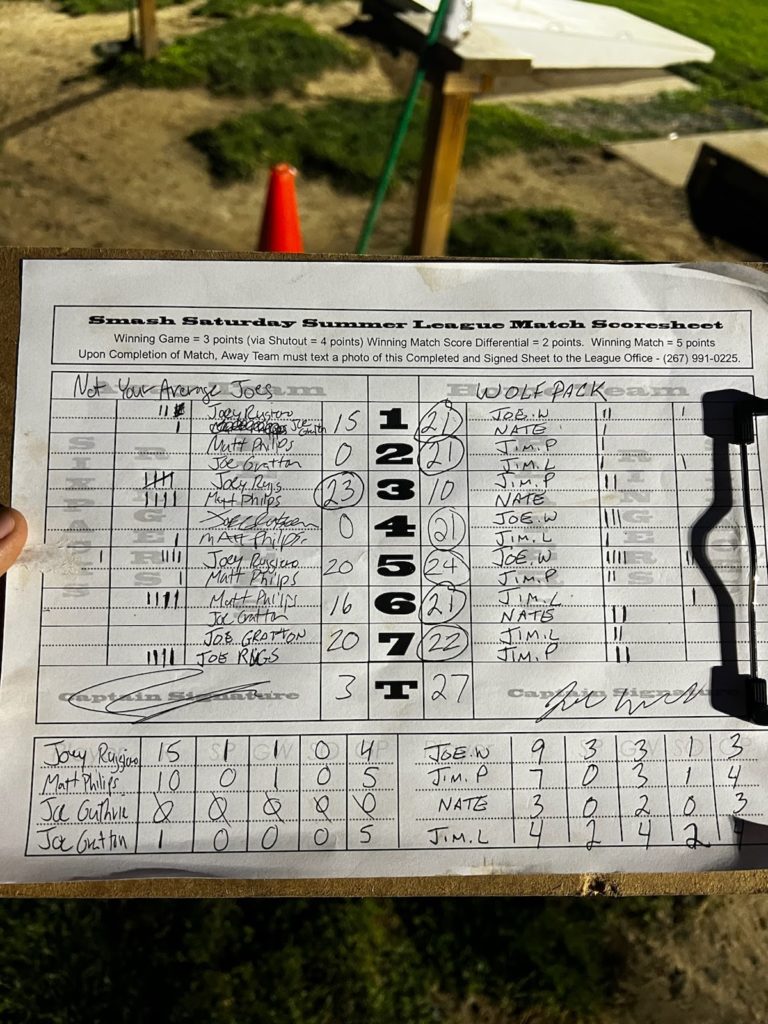 Smash Saturday Summer League Match Scoresheet
Winning Game = 3 points (via Shutout = 4 points) Winning Match Score Differential = 2 points. Winning Match = 5 points
Upon Completion of Match, Away Team must text a photo of this Completed and Signed Sheet to the League Office - (267) 991-0225.
Not Your Average Joes WOLFPACK
15 1 21 JOE.W
NATE
Matt Philps 0 2 21 JIM.P
Joe Gratton JIM.L
Joey Rugs 23 3 10 JIM.P
Matt Philps NATE
0 4 21 JOE.W
MAtt Philps JIM.L
Joey Ruggiero 20 5 24 JOE.W
Matt Philps JIM.P
Matt Philps 16 6 21 JIM.L
Joe Gratton NATE
JOE GRATTON 20 7 22 JIM.L
JOE RUGS JIM.P
Captain Signature 3 T 27 Captain Signature
Joey Ruggiero 15 1 1 0 4 JOE.W 9 3 3 1 3
Matt Philips 10 0 1 0 5 JIM.P 7 0 3 1 4
Joe Guthrie 0 0 0 0 0 NATE 3 0 2 0 3
Joe Gratton 1 0 0 0 5 JIM.L 4 2 4 2 4